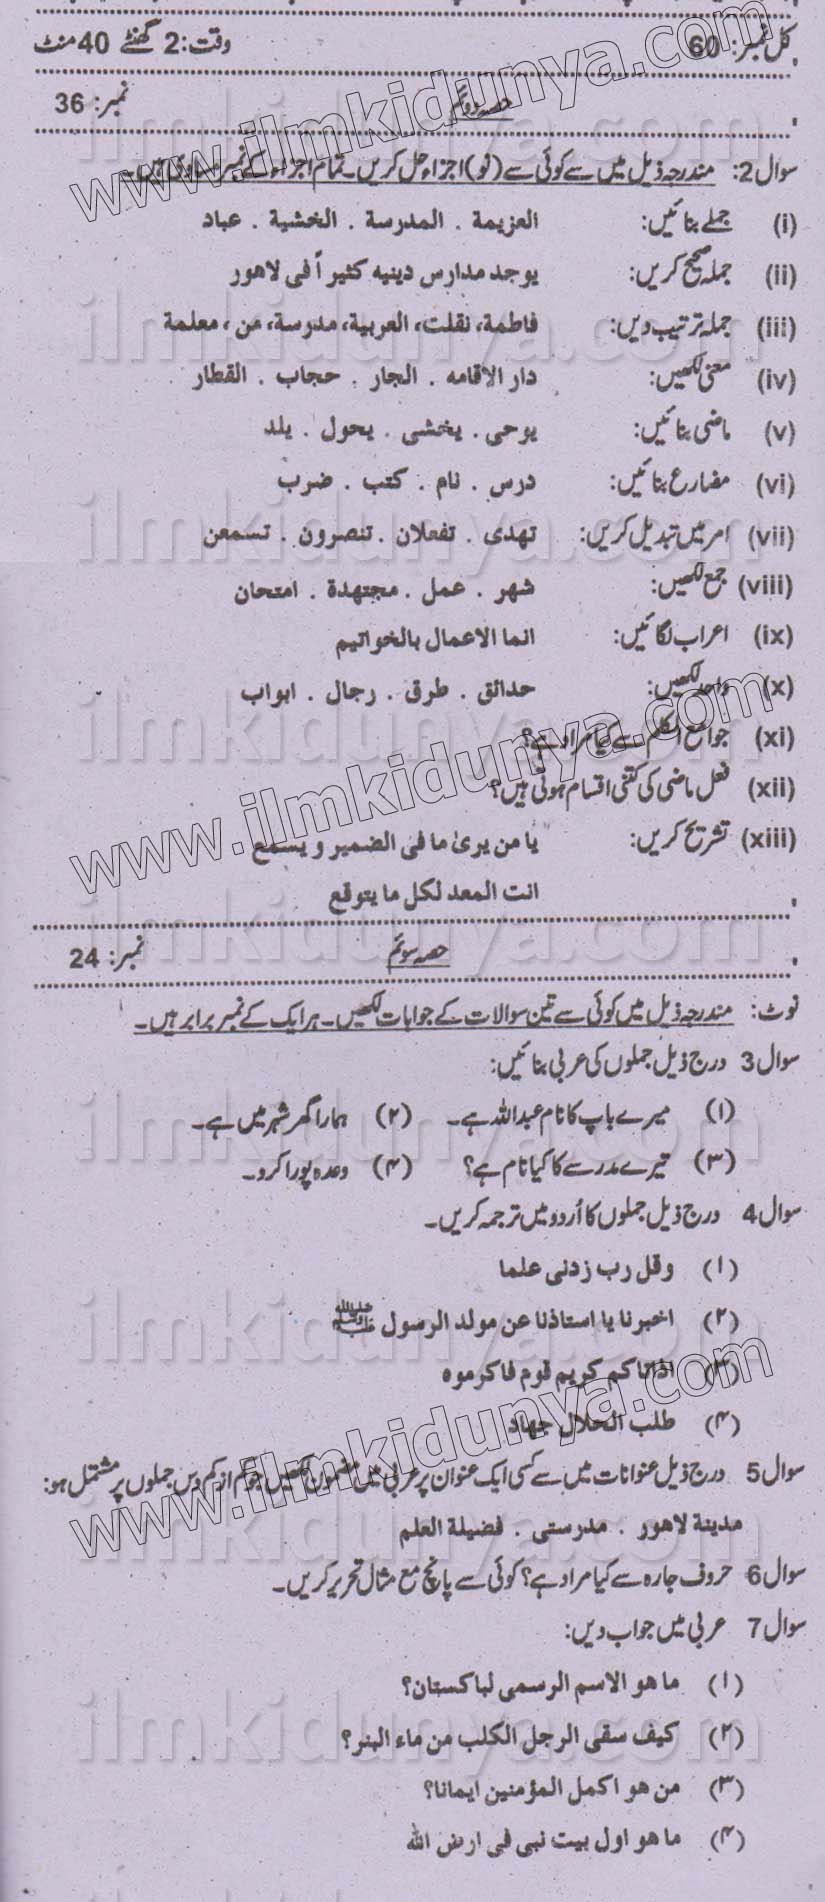 کل نمبر: 60 وقت: 2 گھنٹے 40 منٹ
حصہ دوئم نمبر: 36
سوال 2: مندرجہ ذیل میں سے کوئی سے (نو) اجزاء حل کریں۔ تمام اجزاء کے نمبر مساوی ہیں۔
(i) جملے بنائیں: العزيمة . المدرسة . الخشية . عباد
(ii) جملہ صحیح کریں: يوجد مدارس دينيه كثيراً في لاهور
(iii) جملہ ترتیب دیں: فاطمة، نقلت، العربية، مدرسة، من ، معلمة
(iv) معنی لکھیں: دار الاقامه . الجار . حجاب . القطار
(v) ماضی بنائیں: يوحى . يخشى . يحول . يلد
(vi) مضارع بنائیں: درس . نام . كتب . ضرب
(vii) امر میں تبدیل کریں: تهدى . تفعلان . تنصرون . تسمعن
(viii) جمع لکھیں: شهر . عمل . مجتهدة . امتحان
(ix) اعراب لگائیں: انما الاعمال بالخواتيم
(x) واحد لکھیں: حدائق . طرق . رجال . ابواب
(xi) جوامع الکلم سے کیا مراد ہے؟
(xii) فعل ماضی کی کتنی اقسام ہوتی ہیں؟
(xiii) تشریح کریں: يا من يرىٰ ما فى الضمير و يسمع
انت المعد لكل ما يتوقع
حصہ سوئم نمبر: 24
نوٹ: مندرجہ ذیل میں کوئی سے تین سوالات کے جوابات لکھیں۔ ہر ایک کے نمبر برابر ہیں۔
سوال 3 درج ذیل جملوں کی عربی بنائیں:
(۱) میرے باپ کا نام عبداللہ ہے۔ (۲) ہمارا گھر شہر میں ہے۔
(۳) تیرے مدرسے کا کیا نام ہے؟ (۴) وعدہ پورا کرو۔
سوال 4 درج ذیل جملوں کا اُردو میں ترجمہ کریں۔
(۱) وقل رب زدنى علما
(۲) اخبرنا يا استاذنا عن مولد الرسول ﷺ
(۳) اذا اتاكم كريم قوم فاكرموه
(۴) طلب الحلال جهاد
سوال 5 درج ذیل عنوانات میں سے کسی ایک عنوان پر عربی میں مضمون لکھیں جو کم از کم دس جملوں پر مشتمل ہو:
مدينة لاهور . مدرستى . فضيلة العلم
سوال 6 حروف جارہ سے کیا مراد ہے؟ کوئی سے پانچ مع مثال تحریر کریں۔
سوال 7 عربی میں جواب دیں:
(۱) ما هو الاسم الرسمى لباكستان؟
(۲) كيف سقى الرجل الكلب من ماء البئر؟
(۳) من هو اكمل المؤمنين ايمانا؟
(۴) ما هو اول بيت نبى فى ارض الله
www.ilmkidunya.com